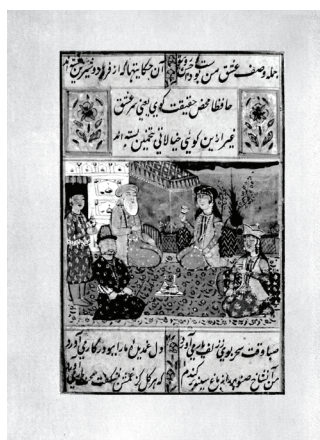 جمله وصف عشق من بودست آن حکایتها که از فرهاد و شیرین بسته اند
حافظا محض حقیقت گوی یعنی سر عشق
غیر ازین گویی خیالاتی بتخمین بسته اند
صبا وقت سحر بویی ز زلف یار می آورد دل ما را ببو در کار می آورد
من آن شاخ صنوبر را ز باغ سینه بر کندم که هر گل کز غمش بشکفت محنت